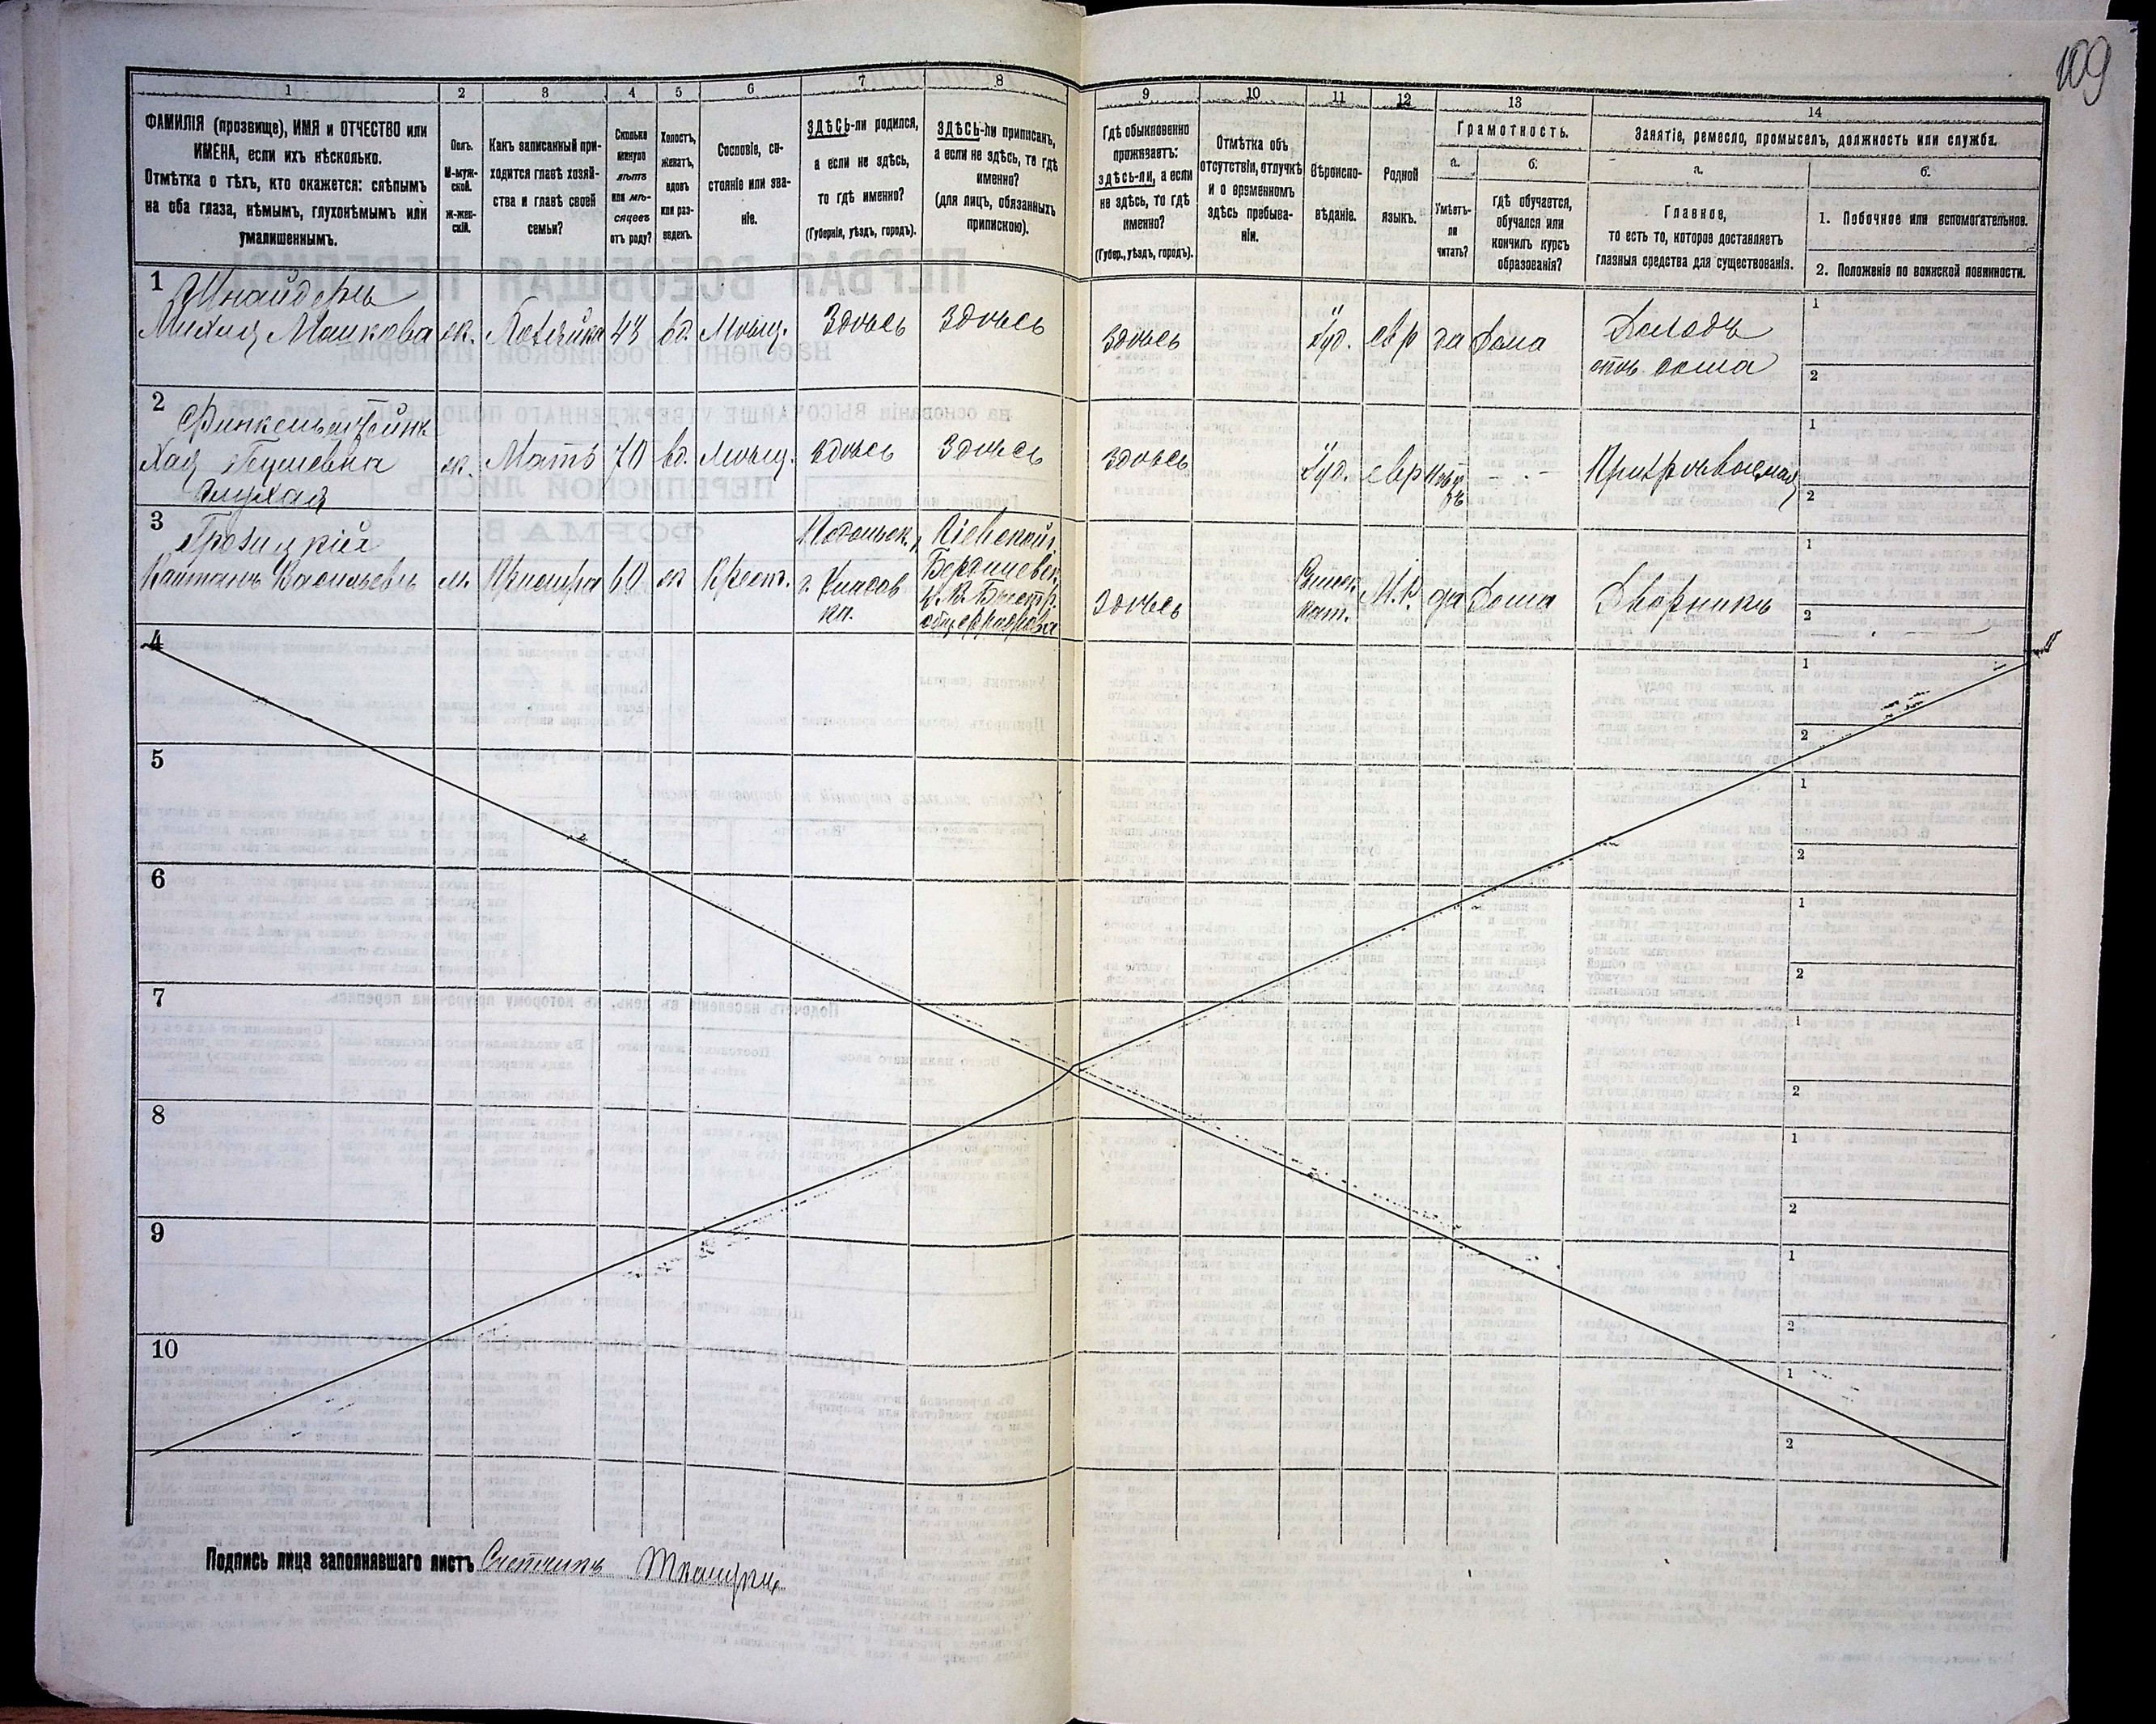 109
1 2 3 4 5 6 7 8 9 10 11 12 13 14
ФАМИЛІЯ (прозвище), ИМЯ и ОТЧЕСТВО или
ИМЕНА, если ихъ нѣсколько.
Отмѣтка о тѣхъ, кто окажется: слѣпымъ
на оба глаза, нѣмымъ, глухонѣмымъ или
умалишеннымъ.
Полъ.
М-муж-
ской.
Ж-жен-
скій.
Какъ записанный при-
ходится главѣ хозяй-
ства и главѣ своей
семьи?
Сколько
минуло
лѣтъ
или мѣ-
сяцевъ
отъ роду?
Холостъ,
женатъ,
вдовъ
или раз-
веденъ.
Сословіе, со-
стояніе или зва-
ніе.
ЗДѢСЬ-ли родился,
а если не здѣсь,
то гдѣ именно?
(Губернія, уѣздъ, городъ).
ЗДѢСЬ-ли приписанъ,
а если не здѣсь, то гдѣ
именно?
(для лицъ, обязанныхъ
припискою).
Гдѣ обыкновенно
проживаетъ:
здѣсь-ли, а если
не здѣсь, то гдѣ
именно?
(Губер., уѣздъ, городъ).
Отмѣтка объ
отсутствіи, отлучкѣ
и о временномъ
здѣсь пребыва-
ніи.
Вѣроиспо-
вѣданіе.
Родной
языкъ.
Грамотность.
а.
Умѣетъ-
ли
читать?
б.
Гдѣ обучается,
обучался или
кончилъ курсъ
образованія?
Занятіе, ремесло, промыселъ, должность или служба.
а.
Главное,
то есть то, которое доставляетъ
главныя средства для существованія.
б.
1. Побочное или вспомогательное.
2. Положеніе по воинской повинности.
1 Шнайдеръ
ж. Хозяйка 43 вд. Мѣщ. Здѣсь Здѣсь Здѣсь Іуд. евр да Дома Доходъ
отъ дома
1
2
2 Финкельштейнъ
Хая ж. Мать 70 вд. Мѣщ. здѣсь Здѣсь Здѣсь Іуд. евр - -
глухая
1
2
3
Васильевъ м. 60 ж Крест. Здѣсь да Дома Дворникъ
Кіевской г.
1
2
4
1
2
5
1
2
6
1
2
7
1
2
8
1
2
9
1
2
10
1
2
Подпись лица заполнявшаго листъ Счетчикъ